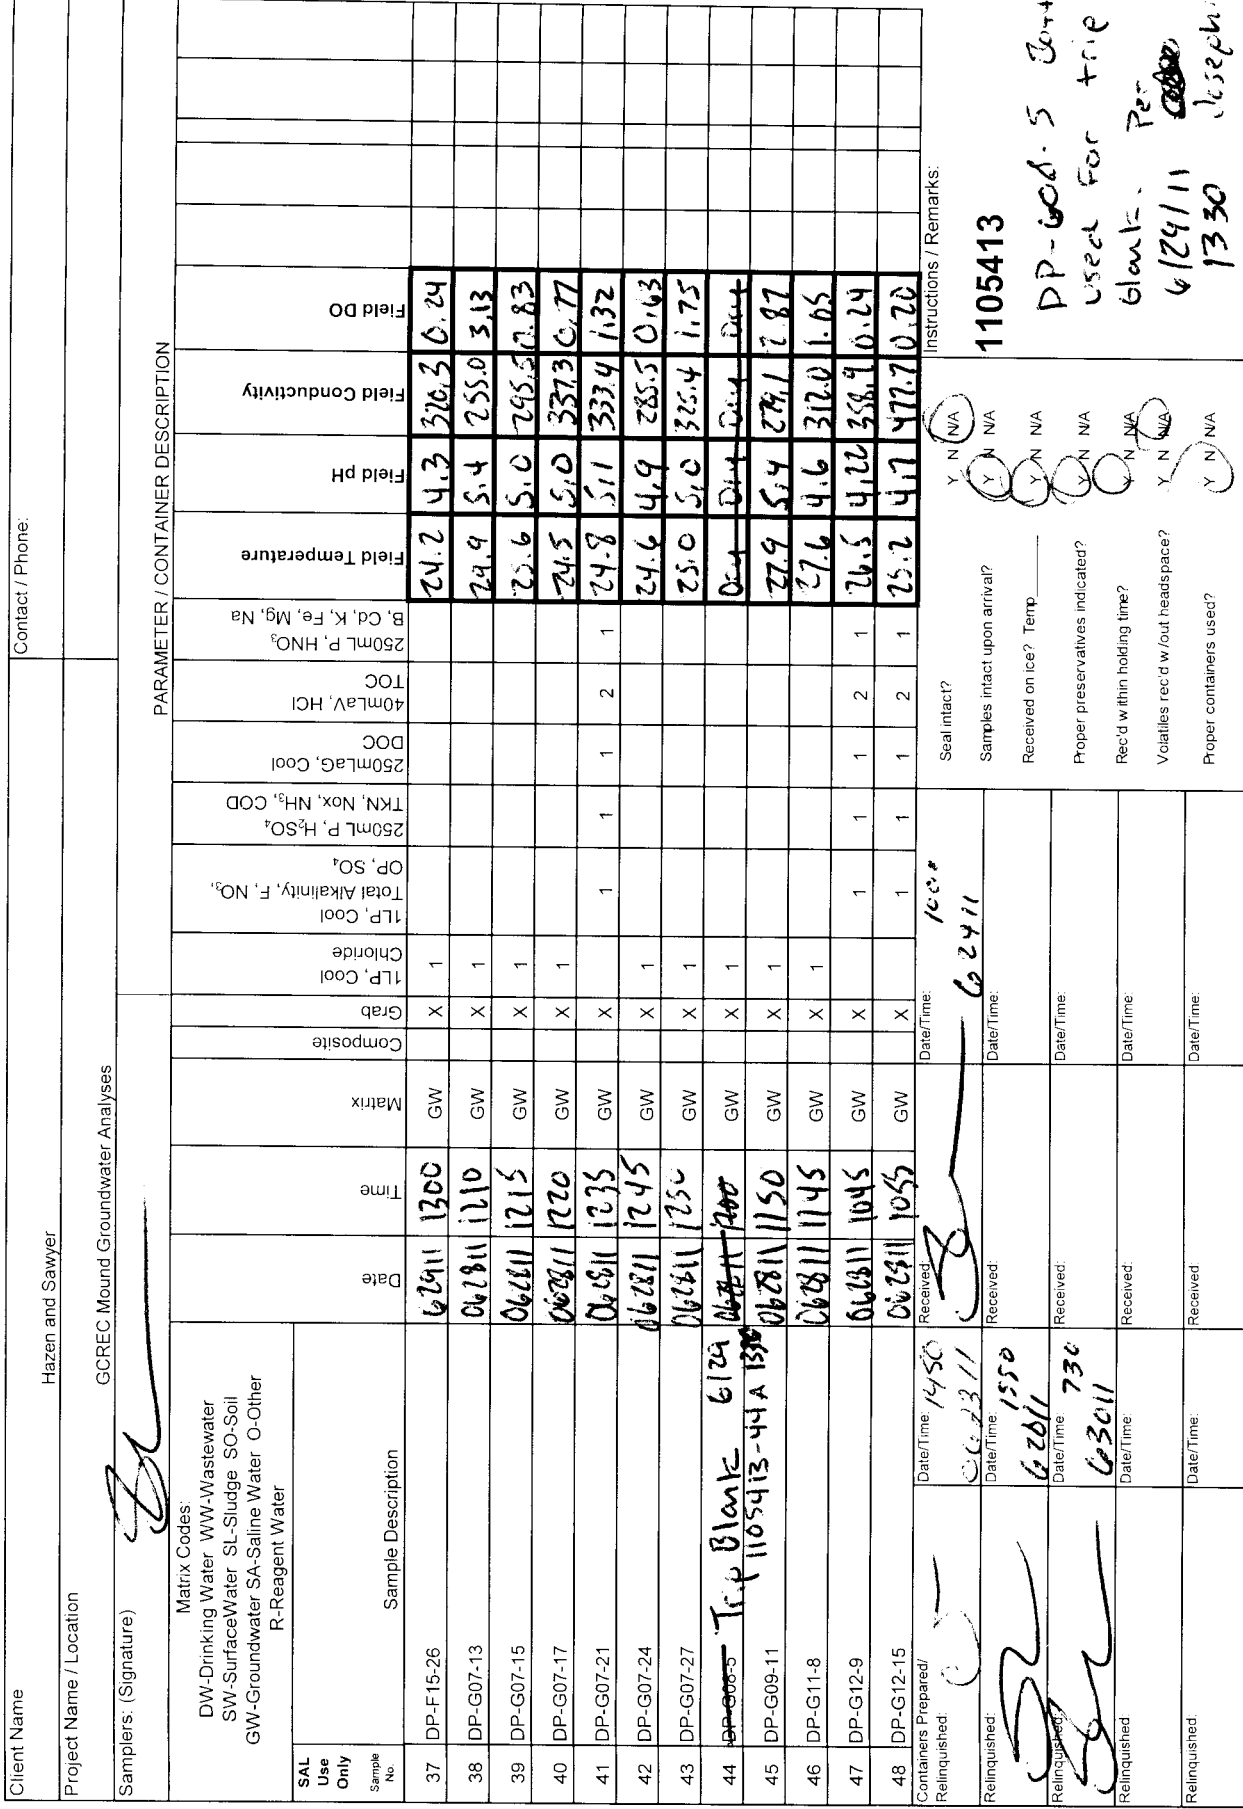 Client Name
Hazen and Sawyer
Contact / Phone:
Project Name / Location
GCREC Mound Groundwater Analyses
Samplers: (Signature)
PARAMETER / CONTAINER DESCRIPTION
Matrix Codes:
DW-Drinking Water WW-Wastewater
SW-SurfaceWater SL-Sludge SO-Soil
GW-Groundwater SA-Saline Water O-Other
R-Reagent Water
SAL
Use
Only
Sample
No.
Sample Description
Date
Time
Matrix
Composite
Grab
1LP, Cool
Chloride
1LP, Cool
Total Alkalinity, F, NO3,
OP, SO4
250mL P, H2SO4
TKN, Nox, NH3, COD
250mLaG, Cool
DOC
40mLaV, HCl
TOC
250mL P, HNO3
B, Cd, K, Fe, Mg, Na
Field Temperature
Field pH
Field Conductivity
Field DO
37 DP-F15-26 62911 1300 GW X 1 24.2 4.3 320.3 0.24
38 DP-G07-13 062811 1210 GW X 1 24.9 5.4 255.0 3.13
39 DP-G07-15 062811 1215 GW X 1 25.6 5.0 295.5 0.83
40 DP-G07-17 062811 1220 GW X 1 24.5 5.0 337.3 0.77
41 DP-G07-21 062811 1235 GW X 1 1 1 2 1 24.8 5.1 333.4 1.32
42 DP-G07-24 062811 1245 GW X 1 24.6 4.9 285.5 0.63
43 DP-G07-27 062811 1250 GW X 1 25.0 5.0 325.4 1.75
44 DP-G08-5 Trip Blank 6/29 062811 1200 GW X 1 Dry Dry Dry Dry
1105413-44A 1330
45 DP-G09-11 062811 1150 GW X 1 27.9 5.4 279.1 2.87
46 DP-G11-8 062811 1145 GW X 1 27.6 4.6 312.0 1.65
47 DP-G12-9 062811 1045 GW X 1 1 1 2 1 26.5 4.22 358.9 0.24
48 DP-G12-15 062811 1055 GW X 1 1 1 2 1 25.2 4.7 477.7 0.20
Containers Prepared/
Relinquished:
Date/Time: 1450
062311
Received:
Date/Time: 1000
62411
Relinquished:
Date/Time: 1550
Received:
Date/Time:
Relinquished:
Date/Time: 730
63011
Received:
Date/Time:
Relinquished:
Date/Time:
Received:
Date/Time:
Relinquished:
Date/Time:
Received:
Date/Time:
Seal intact? Y N N/A
Samples intact upon arrival? Y N N/A
Received on ice? Temp Y N N/A
Proper preservatives indicated? Y N N/A
Rec'd within holding time? Y N N/A
Volatiles rec'd w/out headspace? Y N N/A
Proper containers used? Y N N/A
Instructions / Remarks:
1105413
DP-G08-5
used For trip
blank. Per
6/29/11
1330 Joseph